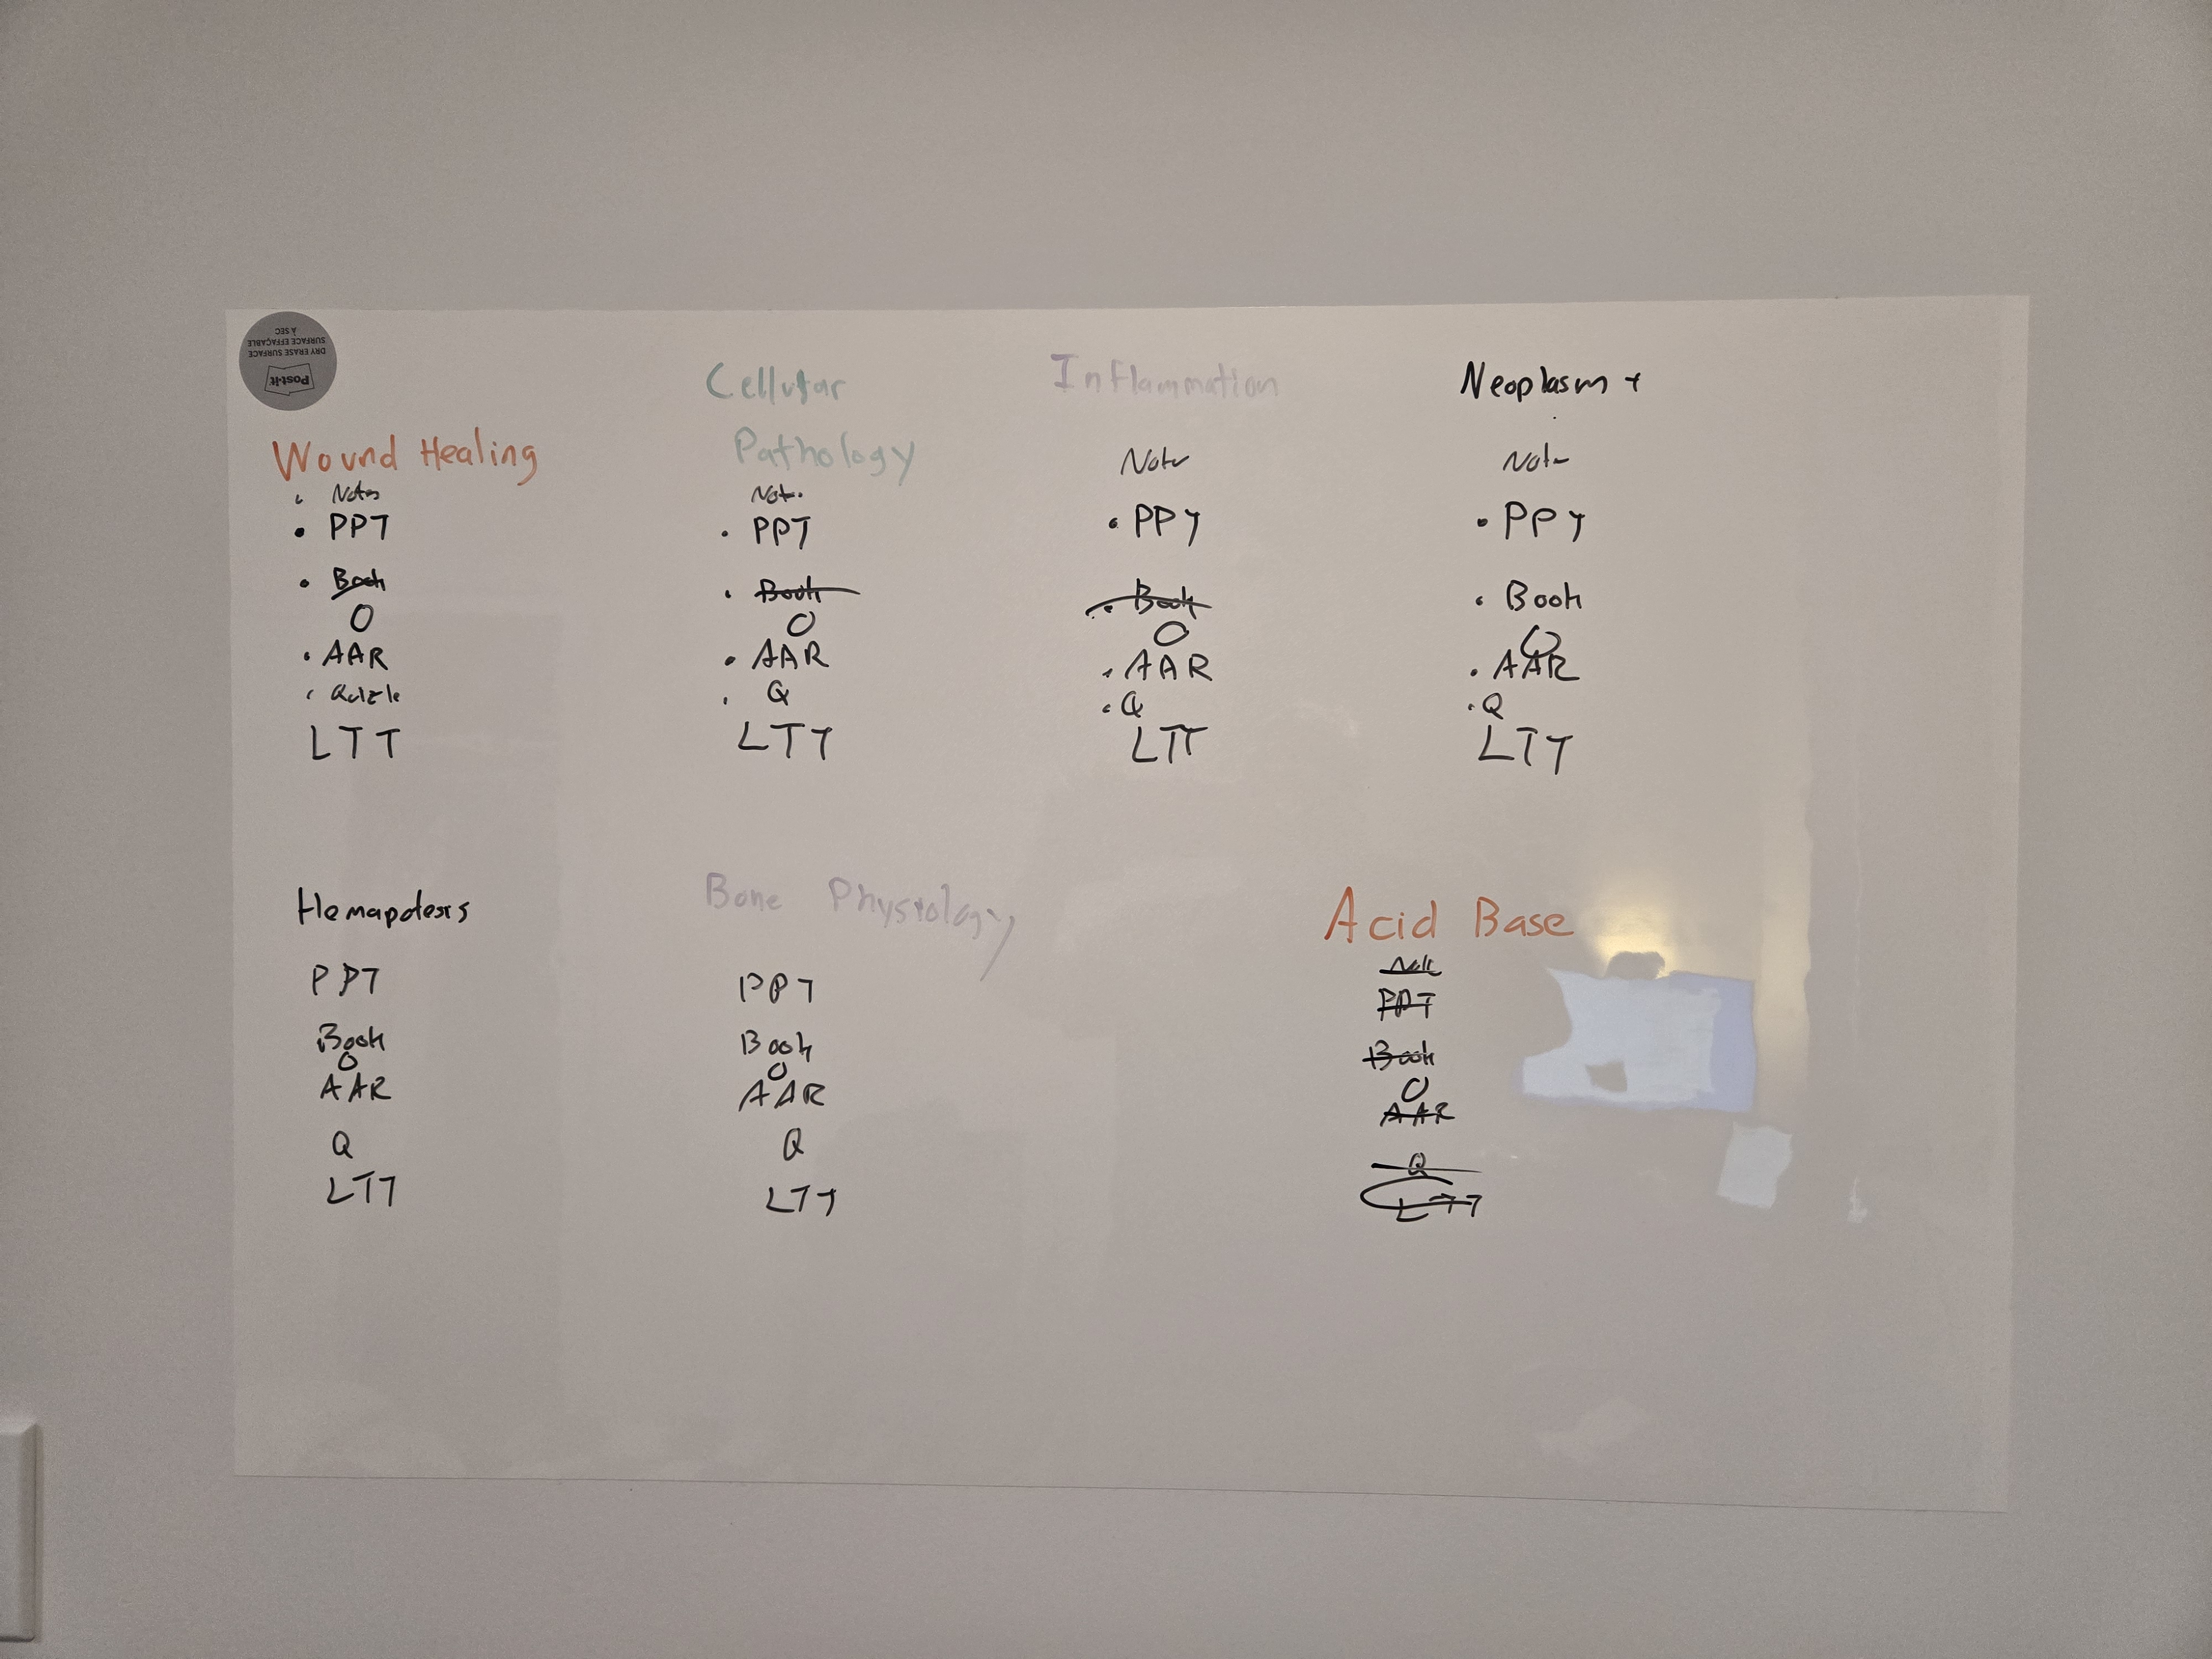 Post-it
DRY ERASE SURFACE
SURFACE EFFAÇABLE
À SEC
Wound Healing
• Notes
• PPT
• Book
O
• AAR
• Quizle
LTT
Cellular
Pathology
Note
• PPT
• Book
O
• AAR
• Q
LTT
Inflammation
Note
• PPT
• Book
O
• AAR
• Q
LTT
Neoplasm +
Note
• PPT
• Book
O
• AAR
• Q
LTT
PPT
Book
O
AAR
Q
LTT
Bone Physiology
PPT
Book
O
AAR
Q
LTT
Acid Base
PPT
Book
O
AAR
Q
LTT